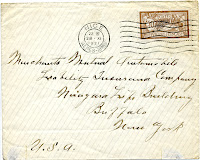 NICE
Merchants Mutual Automobile
Liability Insurance Company
Niagara Life Building
Buffalo
New York
U.S.A